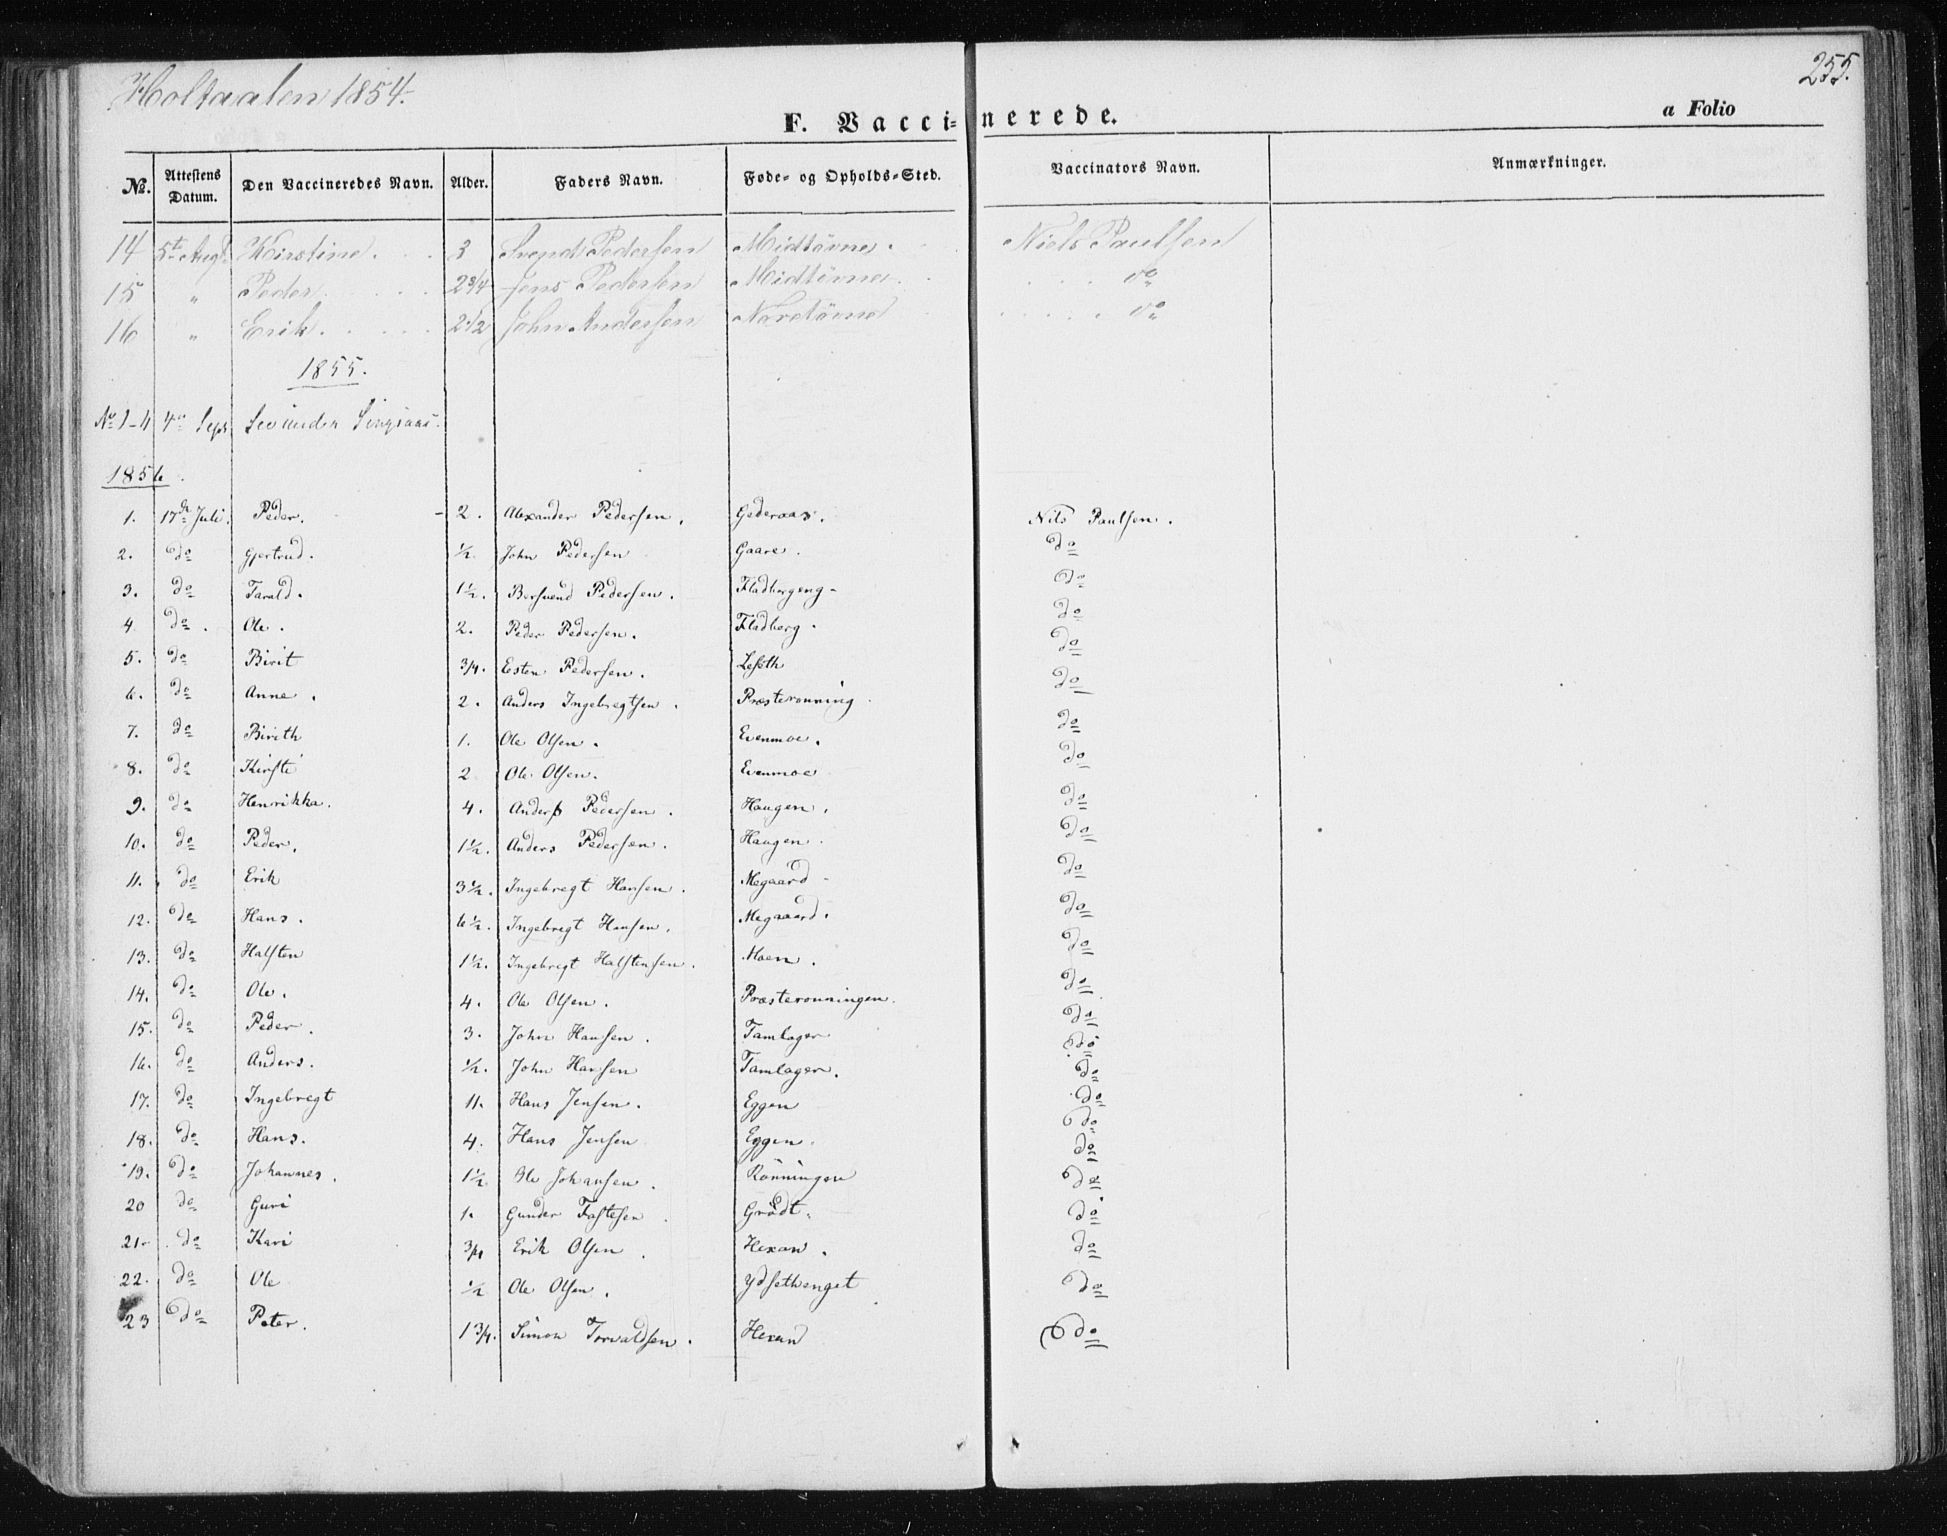 Holtaalen 1854.
255.
F. Vaccinerede.
a Folio
No. Attestens Datum. Den Vaccineredes Navn. Alder. Faders Navn. Føde- og Opholds-Sted. Vaccinators Navn. Anmærkninger.
14 5te Augt Kirstine. 3 Svend Pedersen Midtövne. Niels Paulsen
15 " Peder. 2 3/4 Jens Pedersen Midtövne. do
16 " Erik. 2 1/2 John Andersen Nordövne do
1855.
No 1-4 4de Sept. Sees under Singsaas.
1856.
1. 17de Juli. Peder. - 2. Alexander Pedersen. Gederaas. Nils Paulsen.
2. do Gjertrud. 1/2. John Pedersen Gaare. do
3. do Tarald. 1 1/2. Bersvend Pedersen. Fladbergeng- do
4. do. Ole. 2. Peder Pedersen. Fladberg. do
5. do Birit 3/4. Eesten Pedersen. do
6. do Anne. 2. Anders Ingebregtsen. Præsterønning. do
7. do Birith 1. Ole Olsen. Evenmoe. do
8. do Kirsti 2 Ole Olsen. Evenmoe do
9. do Henrikka. 4. Anders Pedersen. Haugen. do
10. do Peder. 1 1/2. Anders Pedersen. Haugen. do
11. do Erik 3 1/2. Ingebregt Hansen. Megaard- do
12. do Hans. 6 1/2. Ingebregt Hansen. Megaard. do
13. do Halsten 1 1/2. Ingebregt Halstensen. Moen. do
14. do Ole. 4. Ole Olsen. Præsterønningen. do
15. do Peder. 3. John Hansen. Tamlager do
16. do Anders. 1/2. John Hansen Tamlager. do
17. do Ingebregt 11. Hans Jensen. Eggen do
18. do Hans. 4. Hans Jensen Eggen. do
19. do Johannes. 1 1/2 Ole Johansen. Rönningen do
20 do Guri 1. Gunder Fastesen. Grödt. do
21. do Kari 3/4 Erik Olsen. Hexan. do
22. do Ole 1/2 Ole Olsen. Ydsethenget do
23 do Peter. 1 3/4. Simon Torvaldsen. Hexan do